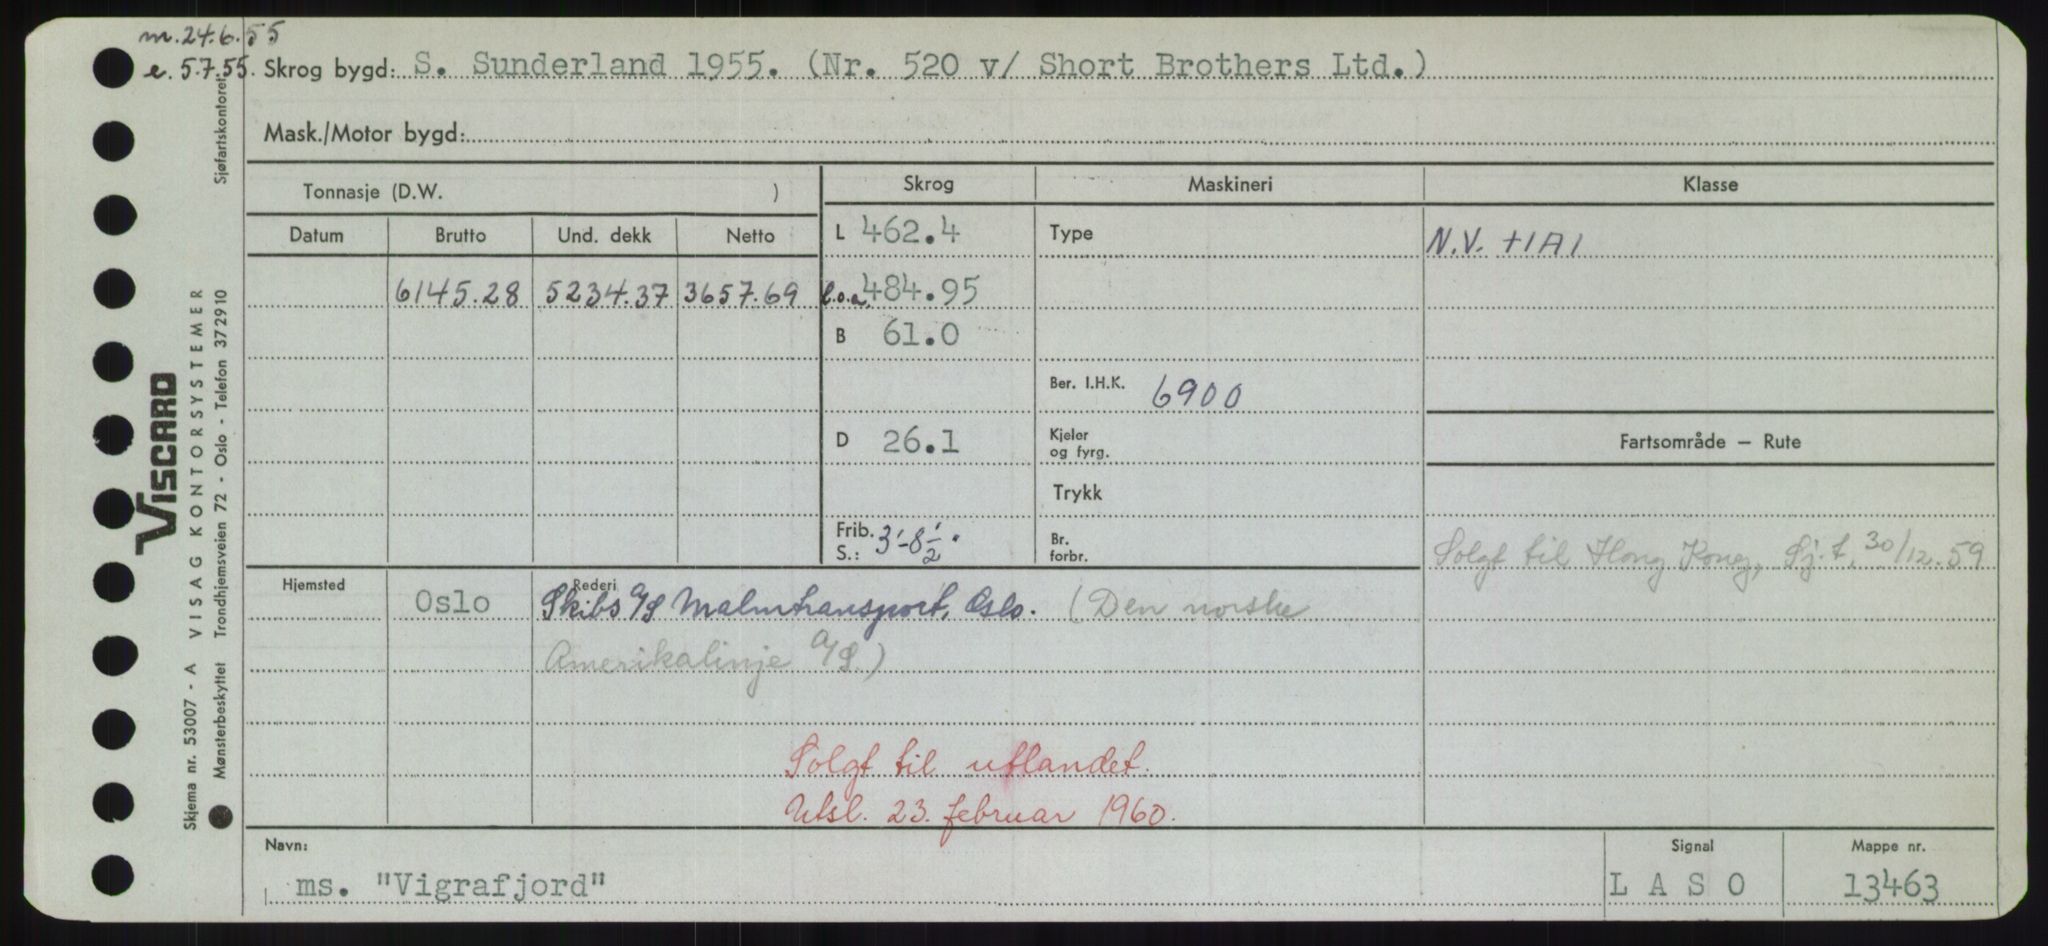 m. 24.6.55
e. 5.7.55. Skrog bygd: S. Sunderland 1955. (Nr. 520 v/ Short Brothers Ltd.)
Mask./Motor bygd:
Tonnasje (D.W. )
Skrog Maskineri Klasse
Datum Brutto Und. dekk Netto
L 462.4 Type N.V. +1A1
6145.28 5234.37 3657.69 l.o.a. 484.95
B 61.0
Ber. I.H.K. 6900
D 26.1 Kjeler og fyrg. Fartsområde – Rute
Trykk
Frib. S.: 3'-8½" Br. forbr. Solgt til Hong Kong, Sj.t. 30/12.59
Hjemsted Oslo Rederi Skibs A/S Malmtransport, Oslo. (Den norske
Amerikalinje A/S.)
Solgt til utlandet.
Utsl. 23. februar 1960.
Navn: Signal Mappe nr.
ms. "Vigrafjord" L A S O 13463
Skjema nr. 53007 - A VISAG KONTORSYSTEMER
VISCARD
Mønsterbeskyttet Trondhjemsveien 72 - Oslo - Telefon 372910
Sjøfartskontoret